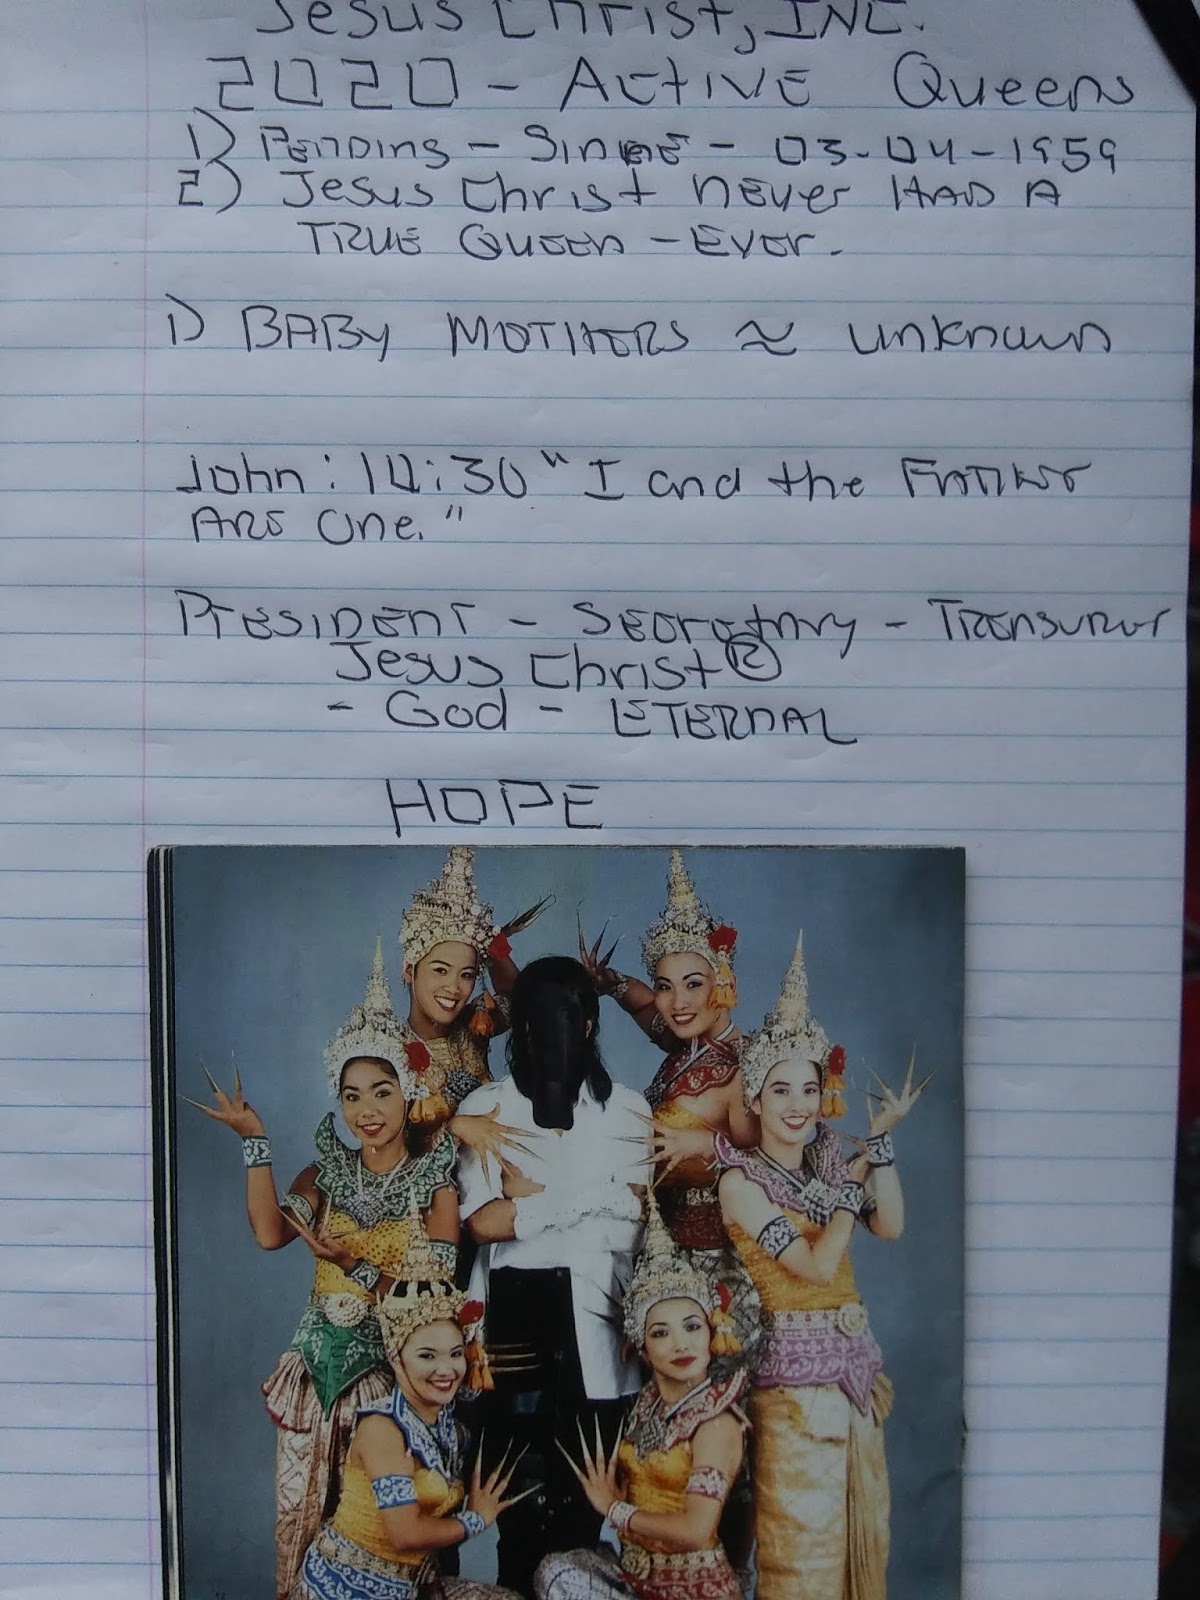 Jesus Christ, INC.
2020 - Active Queens
1) Pending - Since - 03-04-1959
2) Jesus Christ never HAD A
TRUE Queen - Ever.
1) BABY MOTHERS ≈ unknown
John: 14:30 "I and the Father
ARE One."
President - Secretary - Treasurer
Jesus Christ ®
- God - ETERNAL
HOPE